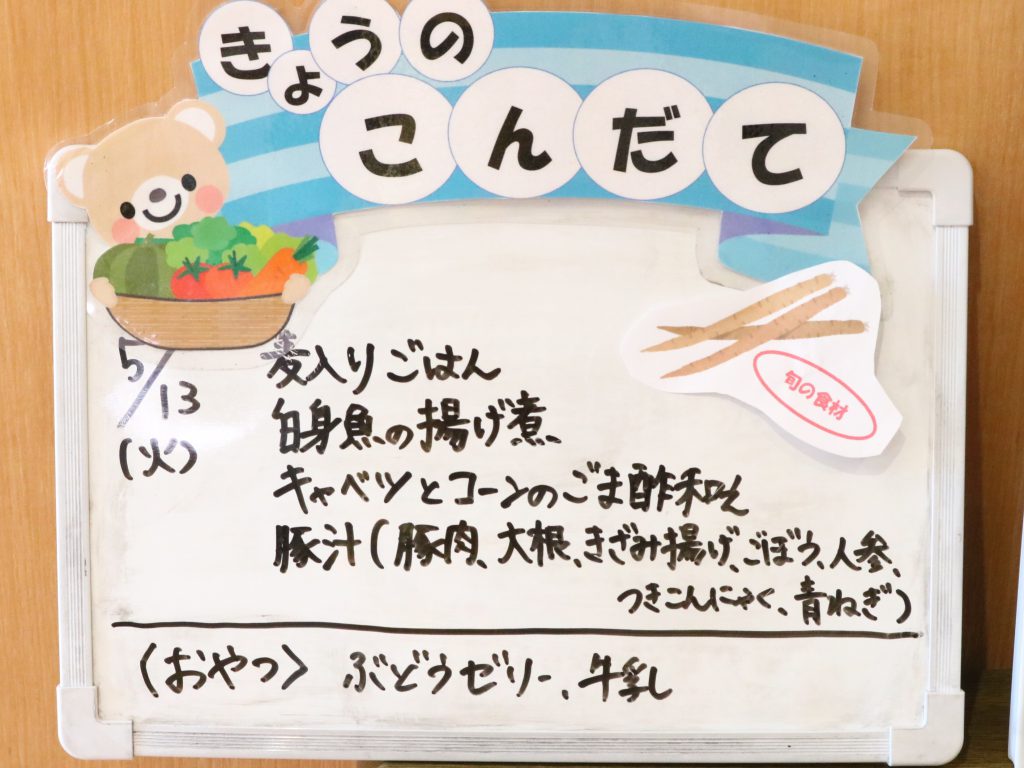 きょうの
こんだて
旬の食材
5/13
(火)
麦入りごはん
白身魚の揚げ煮
キャベツとコーンのごま酢和え
豚汁(豚肉、大根、きざみ揚げ、ごぼう、人参、
つきこんにゃく、青ねぎ)
〈おやつ〉 ぶどうゼリー、牛乳